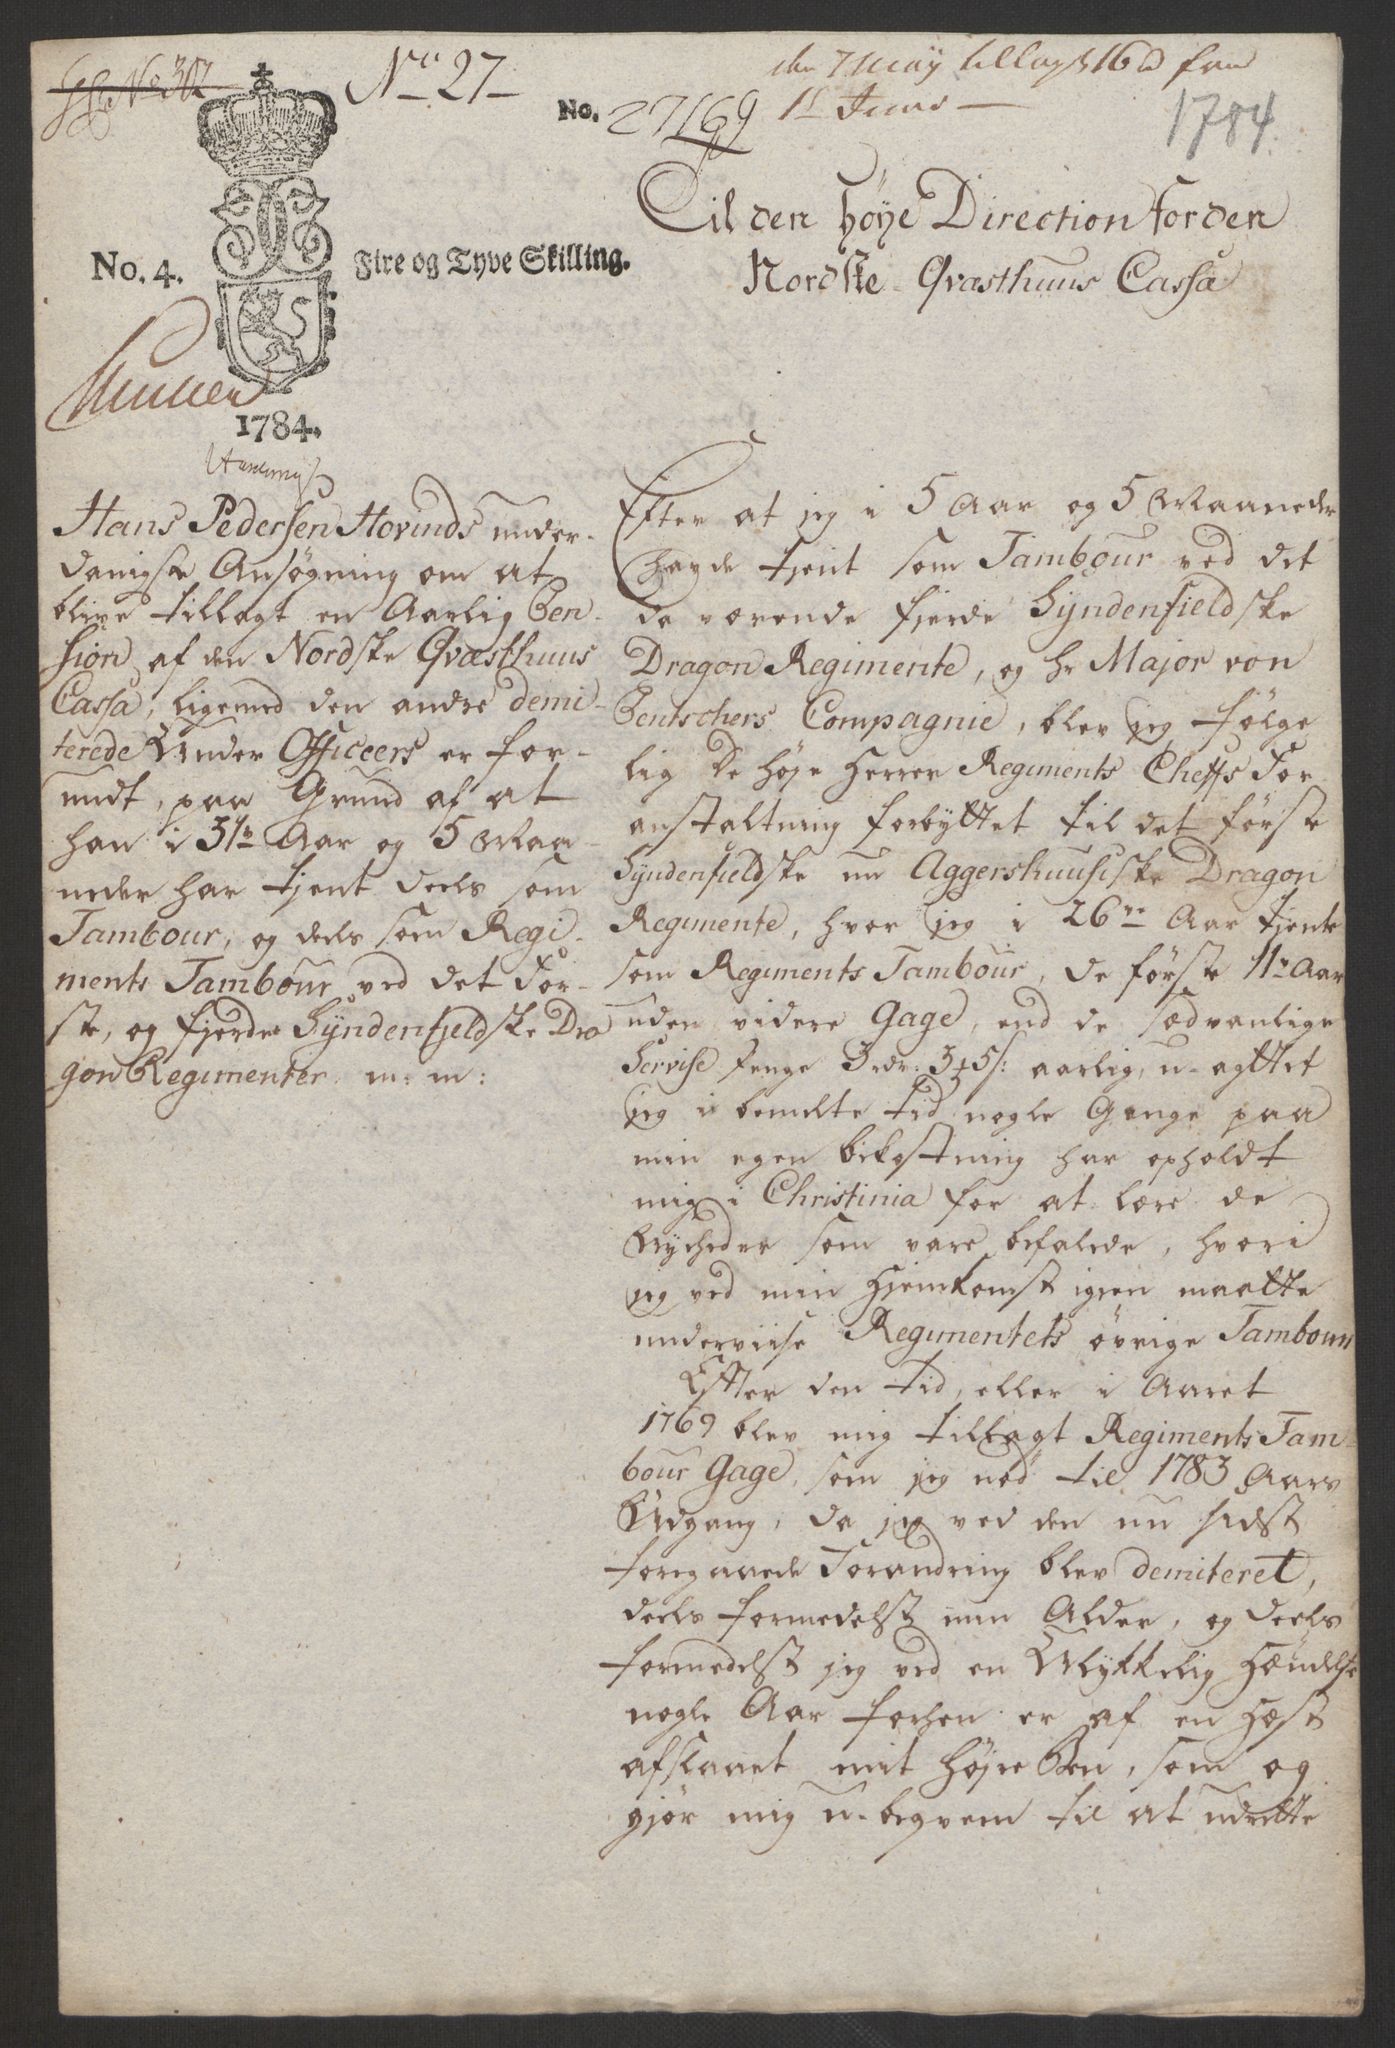 No 302
No 27
No. 27169
den 7 Maÿ tillagt 16 rd fra
1st Juni
1784
Til den høÿe Direction for den
Nordske Qvæsthuus Cassa
No. 4.
Fire og Tyve Skilling.
1784.
Hans Pedersen Hovinds under-
danigste Ansøgning om at
blive tillagt en Aarlig Pen-
sion af den Nordske Qvæsthuus
Cassa, ligemed den andre demi-
terede Under Officeers er for-
undt, paa Grund af at
han i 31te Aar og 5 Maa-
neder har tjent deels som
Tambour, og deels som Regi-
ments Tambour ved det For-
ste, og fjerde Sÿndenfjeldske Dra
gon Regimenter m: m:
Efter at jeg i 5 Aar og 5 Maaneder
havde tjent som Tambour ved det
da værende fjerde Sÿndenfieldske
Dragon Regimente, og Hr Major von
Bentschers Compagnie, blev jeg følge
lig De høje Herrer Regiments Cheffs For
anstaltning forbyttet til det første
Sÿndenfieldske nu Aggershuusiske Dragon
Regimente, hvor jeg i 26ve Aar tjente
som Regiments Tambour, de første 11ve Aar
uden videre Gage, end de sædvanlige
Servise Penge 3 rdr. 3 5 s: aarlig, u-agtet
jeg i bemelte tid nogle Gange paa
min egen bekostning har opholdt
mig i Christinia for at lære de
Nÿeheder som vare befalede, hvori
jeg ved min Hjemkomst igjen maatte
underviise Regimentets øvrige Tambour
Efter den tid, eller i Aaret
1769 blev mig tillagt Regiments Tam-
bour Gage, som jeg nød til 1783 Aars
Udgang, da jeg ved den nu sidst
foregaaede Forandring blev demiteret,
deels formedelst min Alder, og deels
formedelst jeg ved en Ulykkelig Hændelse
nogle Aar forhen er af en Hæst
afslaaet mit højre Ben, som og
gjør mig u-beqvem til at udrette